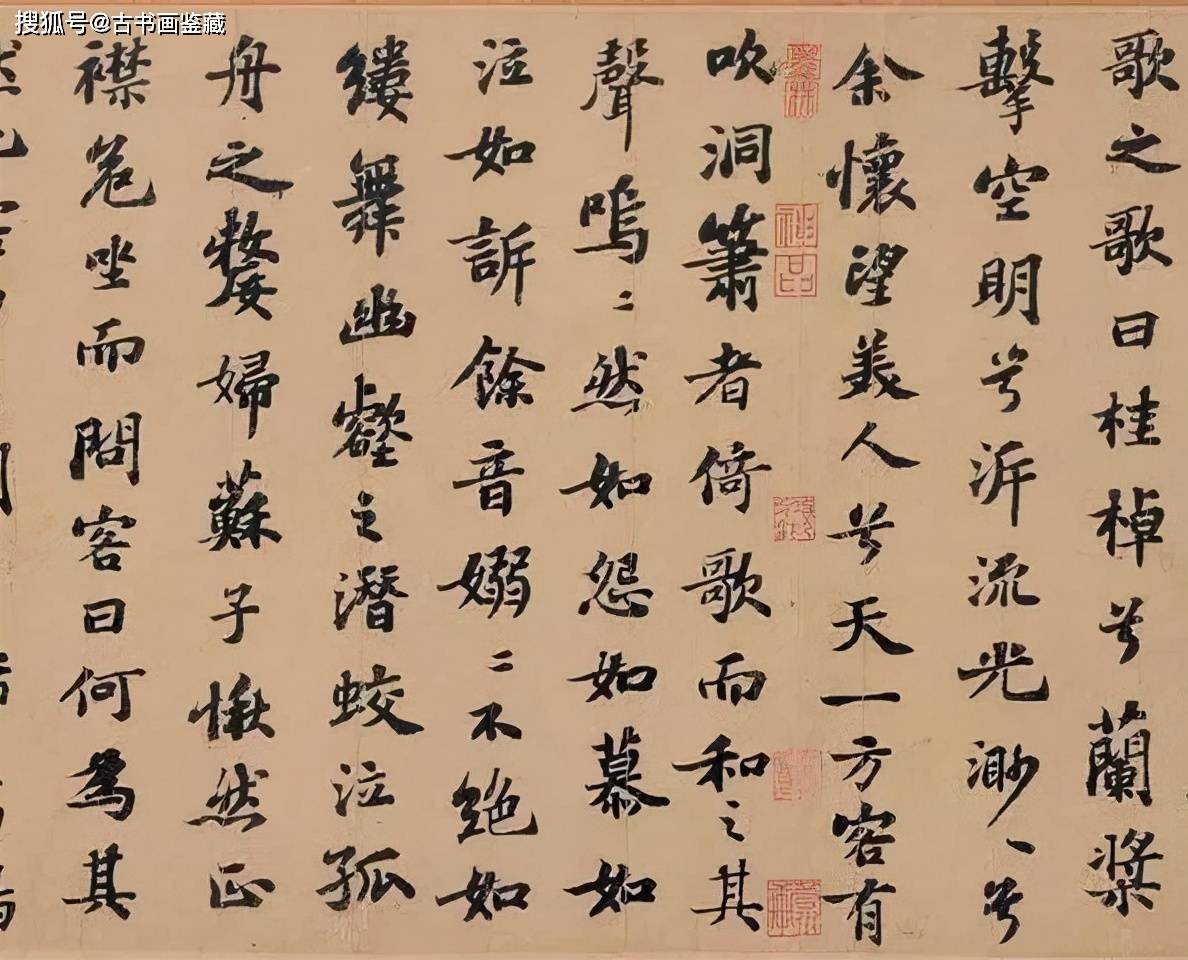 搜狐号@古书画鉴藏
歌之歌曰桂棹兮蘭槳
擊空明兮泝流光渺丶兮
余懷望美人兮天一方客有
吹洞簫者倚歌而和之其
聲嗚〻然如怨如慕如
泣如訴餘音嫋〻不絶如
縷舞幽壑之潛蛟泣孤
舟之嫠婦蘇子愀然正
襟危坐而問客曰何為其
神品